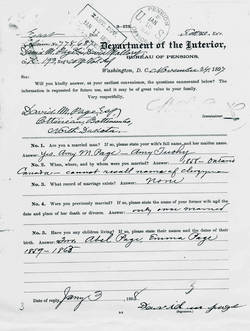 3—173.
Department of the Interior,
BUREAU OF PENSIONS,
Washington, D. C., November 189
Will you kindly answer, at your earliest convenience, the questions enumerated below? The
information is requested for future use, and it may be of great value to your family.
Very respectfully,
David M. Page, Esq
Ottineau, Bottineau,
North Dakota
Commissioner.
No. 1. Are you a married man? If so, please state your wife's full name, and her maiden name.
Answer: Yes. Amy M. Page — Amy
No. 2. When, where, and by whom were you married? Answer: 1855 —
Canada — cannot recall name of clergyman
No. 3. What record of marriage exists? Answer: None
No. 4. Were you previously married? If so, please state the name of your former wife and the
date and place of her death or divorce. Answer: only once married
No. 5. Have you any children living? If so, please state their names and the dates of their
birth. Answer: Two Abel Page, Emma Page
1859 — 1863
Date of reply, Jany 3, 1898